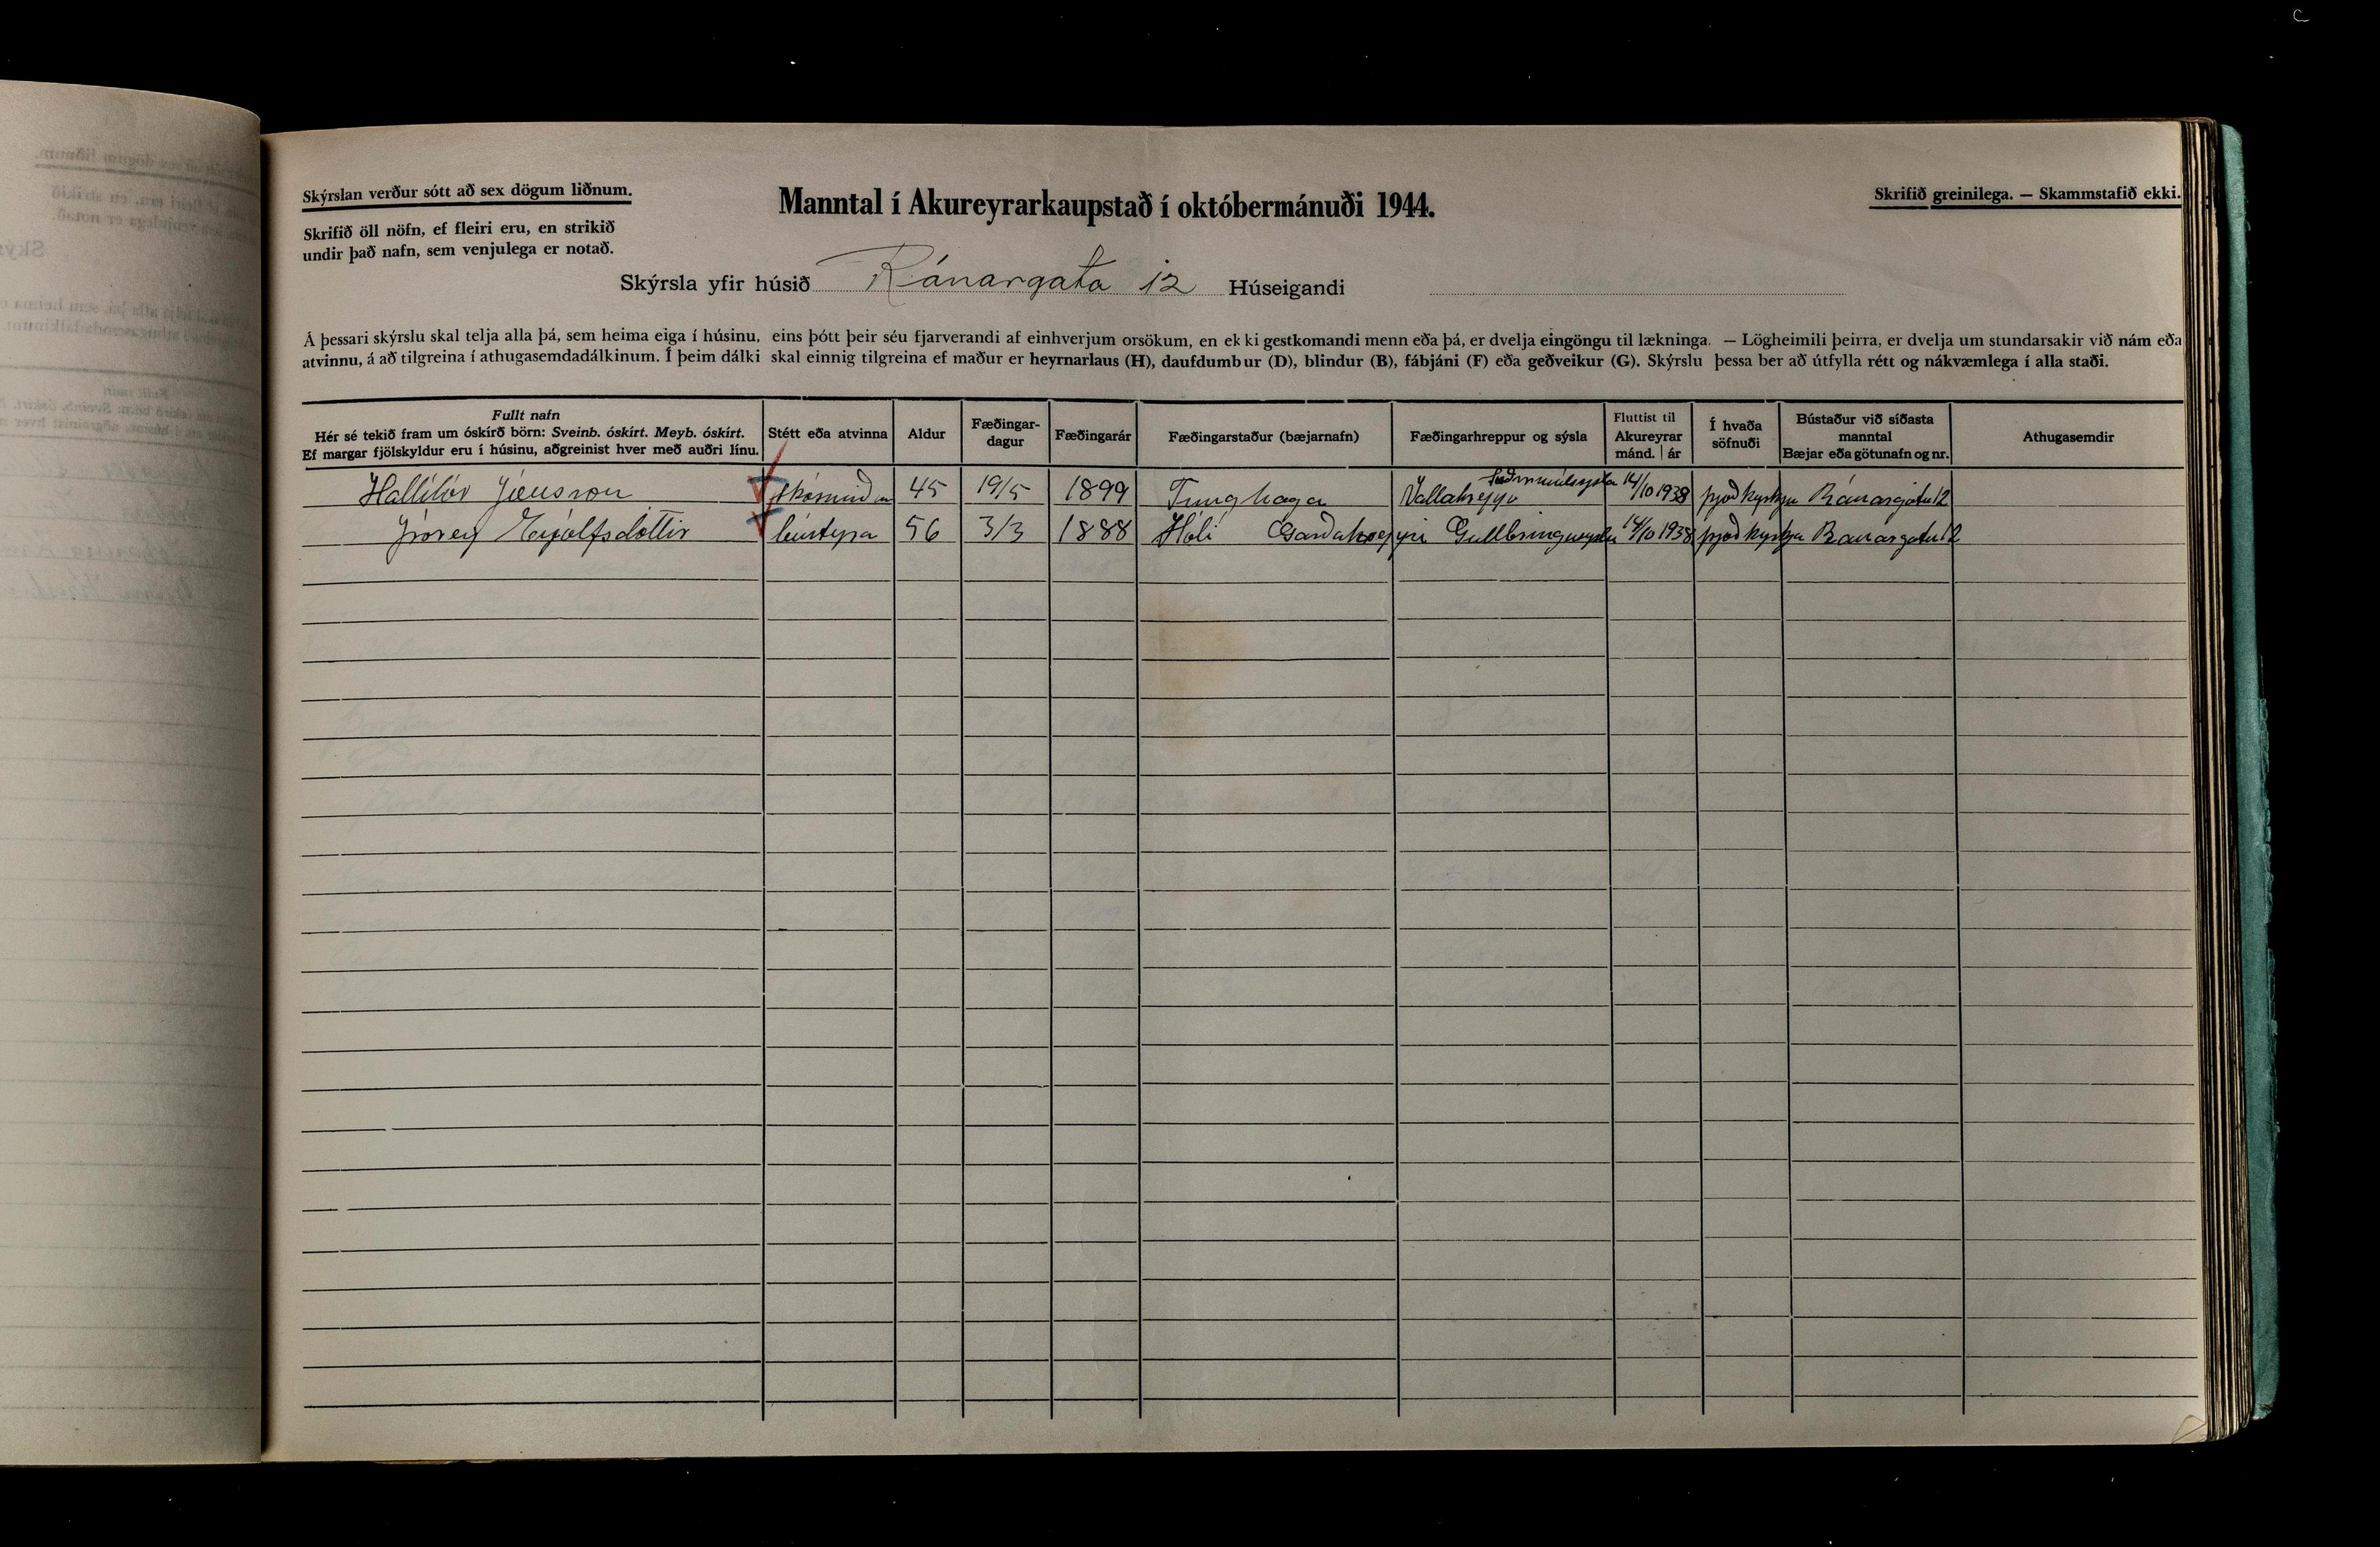 Skýrslan verður sótt að sex dögum liðnum.
Skrifið öll nöfn, ef fleiri eru, en strikið
undir það nafn, sem venjulega er notað.
Manntal í Akureyrarkaupstað í októbermánuði 1944.
Skrifið greinilega. — Skammstafið ekki.
Skýrsla yfir húsið Ránargata 12 Húseigandi
Á þessari skýrslu skal telja alla þá, sem heima eiga í húsinu, eins þótt þeir séu fjarverandi af einhverjum orsökum, en ekki gestkomandi menn eða þá, er dvelja eingöngu til lækninga. — Lögheimili þeirra, er dvelja um stundarsakir við nám eða
atvinnu, á að tilgreina í athugasemdadálkinum. Í þeim dálki skal einnig tilgreina ef maður er heyrnarlaus (H), daufdumbur (D), blindur (B), fábjáni (F) eða geðveikur (G). Skýrslu þessa ber að útfylla rétt og nákvæmlega í alla staði.
Fullt nafn
Hér sé tekið fram um óskírð börn: Sveinb. óskírt. Meyb. óskírt.
Ef margar fjölskyldur eru í húsinu, aðgreinist hver með auðri línu.
Stétt eða atvinna
Aldur
Fæðingar-
dagur
Fæðingarár
Fæðingarstaður (bæjarnafn)
Fæðingarhreppur og sýsla
Fluttist til
Akureyrar
mánd. | ár
Í hvaða
söfnuði
Bústaður við síðasta
manntal
Bæjar eða götunafn og nr.
Athugasemdir
Jónsson 45 19/5 1899 Tunghaga Vallahreppi Suðurmúlasýsla 14/10 1938 þjóðkyrkju Ránargötu 12
Jórey Eyjólfsdóttir bústýra 56 3/3 1888 Hóli Garðahreppi Gullbringusýslu 14/10 1938 þjóðkyrkja Ranargötu 12